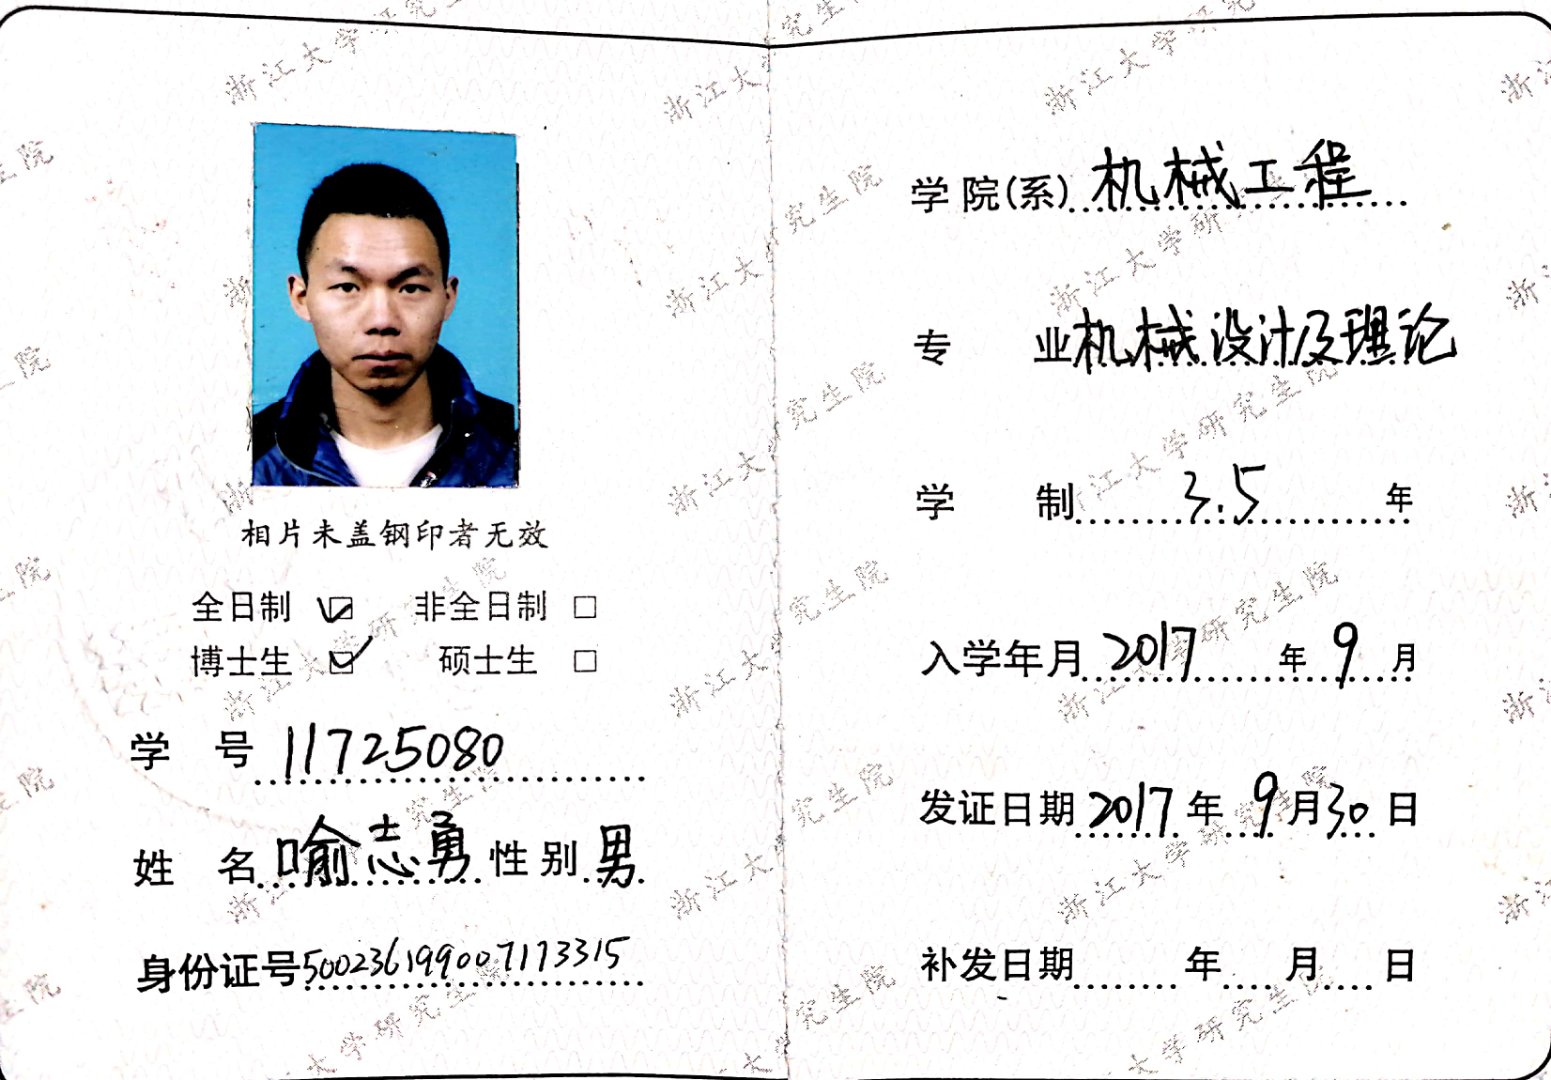 相片未盖钢印者无效
全日制 ☑ 非全日制 □
博士生 ☑ 硕士生 □
学 号 11725080
姓 名 喻志勇 性别 男
身份证号 500236199007173315
学院(系) 机械工程
专 业 机械设计及理论
学 制 3.5 年
入学年月 2017 年 9 月
发证日期 2017 年 9 月 30 日
补发日期 年 月 日
浙江大学研究生院